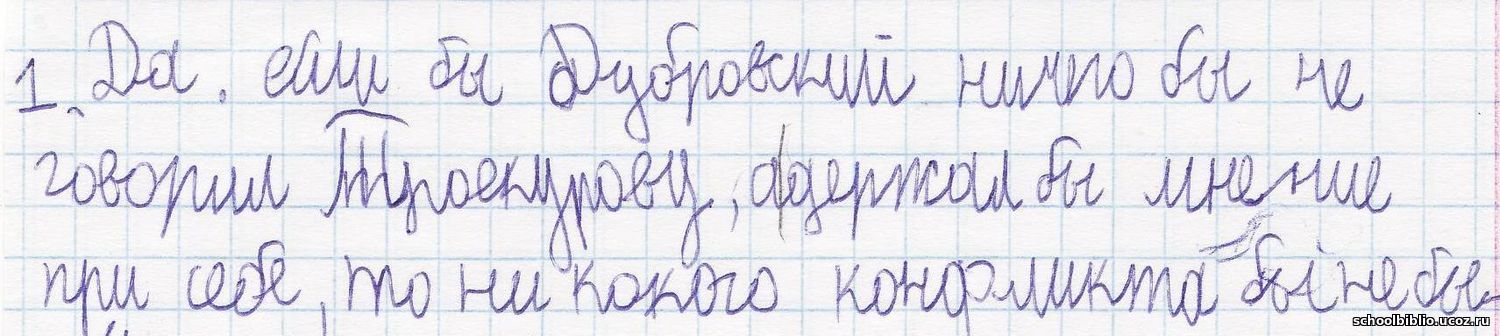 1. Да, если бы Дубровский ничего бы не
говорил Троекурову, а держал бы мнение
при себе, то ни какого конфликта бы не бы-
schoolbiblio.ucoz.ru